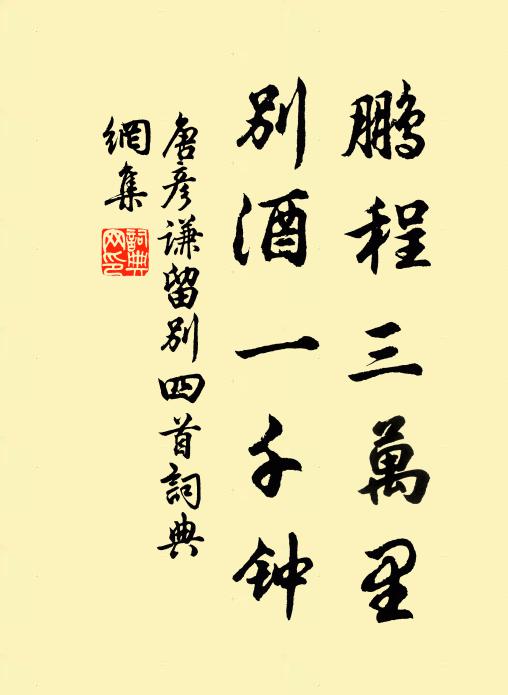 鹏程三萬里
别酒一千钟
唐彦谦留别四首詞典
網集
詞典
网印